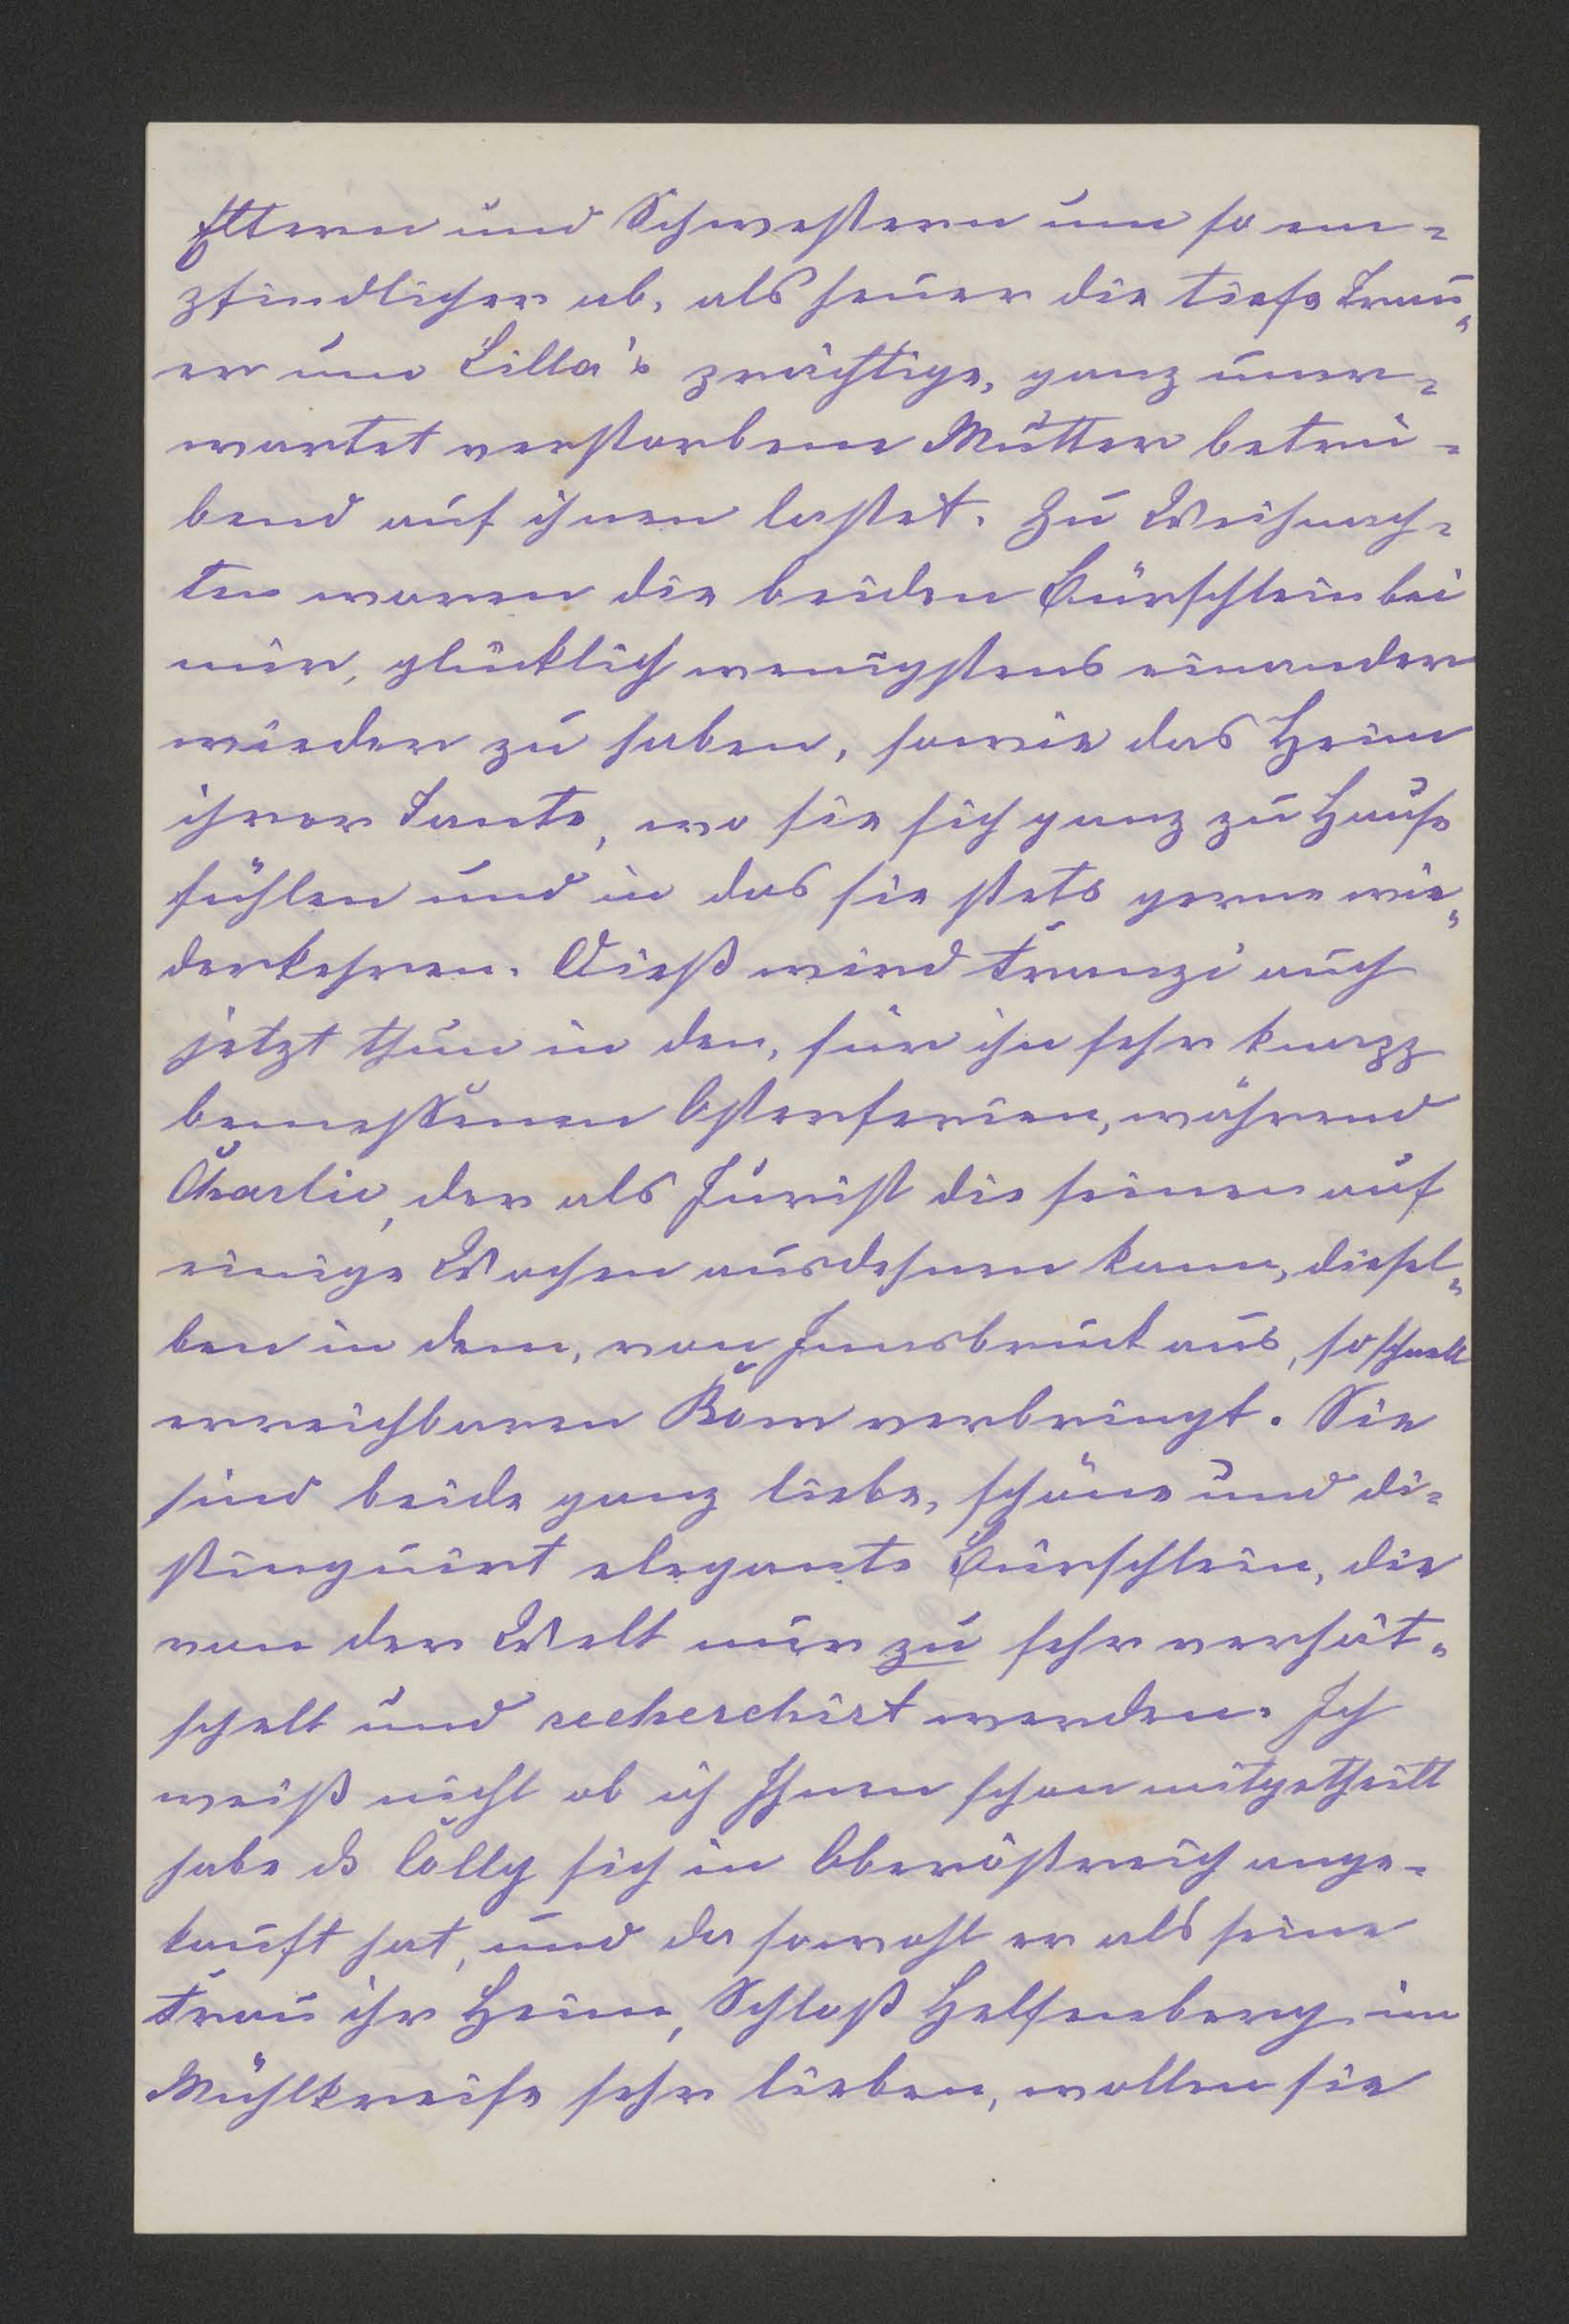 Eltern und Schwestern um so em-
pfindlicher ab, als heuer die tiefe Trau-
er um Lilla's prächtige, ganz uner-
wartet verstorbene Mutter betrü-
bend auf ihnen lastet. Zu Weihnach-
ten waren die beiden Bürschlein bei
mir, glücklich wenigstens einander
wieder zu haben, sowie das Heim
ihrer Tante, wo sie sich ganz zu Hause
fühlen und in das sie stets gerne wie-
derkehren. Dieß wird Franzi auch
jetzt thun in den, für ihn sehr knapp
bemessenen Osterferien, während
Charlie, der als Jurist die seinen auf
einige Wochen ausdehnen kann, diesel-
ben in dem, von Innsbruck aus, so schnell
erreichbaren Rom verbringt. Sie
sind beide ganz liebe, schöne und di-
stinguirt elegante Bürschlein, die
von der Welt nur zu sehr verhät-
schelt und recherchirt werden. Ich
weiß nicht ob ich Ihnen schon mitgetheilt
habe ds Lolly sich in Oberöstreich ange-
kauft hat, und da sowohl er als seine
Frau ihr Heim, Schloß Helfenberg im
Mühlkreise sehr lieben, wollen sie